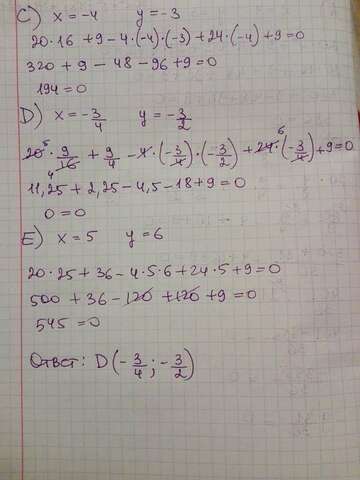 C) x = -4 y = -3
20·16 + 9 - 4·(-4)·(-3) + 24·(-4) + 9 = 0
320 + 9 - 48 - 96 + 9 = 0
194 = 0
D) x = -3/4 y = -3/2
20⁵·9/16₄ + 9/4 - 4·(-3/4)·(-3/2) + 24⁶·(-3/4) + 9 = 0
11,25 + 2,25 - 4,5 - 18 + 9 = 0
0 = 0
E) x = 5 y = 6
20·25 + 36 - 4·5·6 + 24·5 + 9 = 0
500 + 36 - 120 + 120 + 9 = 0
545 = 0
Ответ: D(-3/4; -3/2)